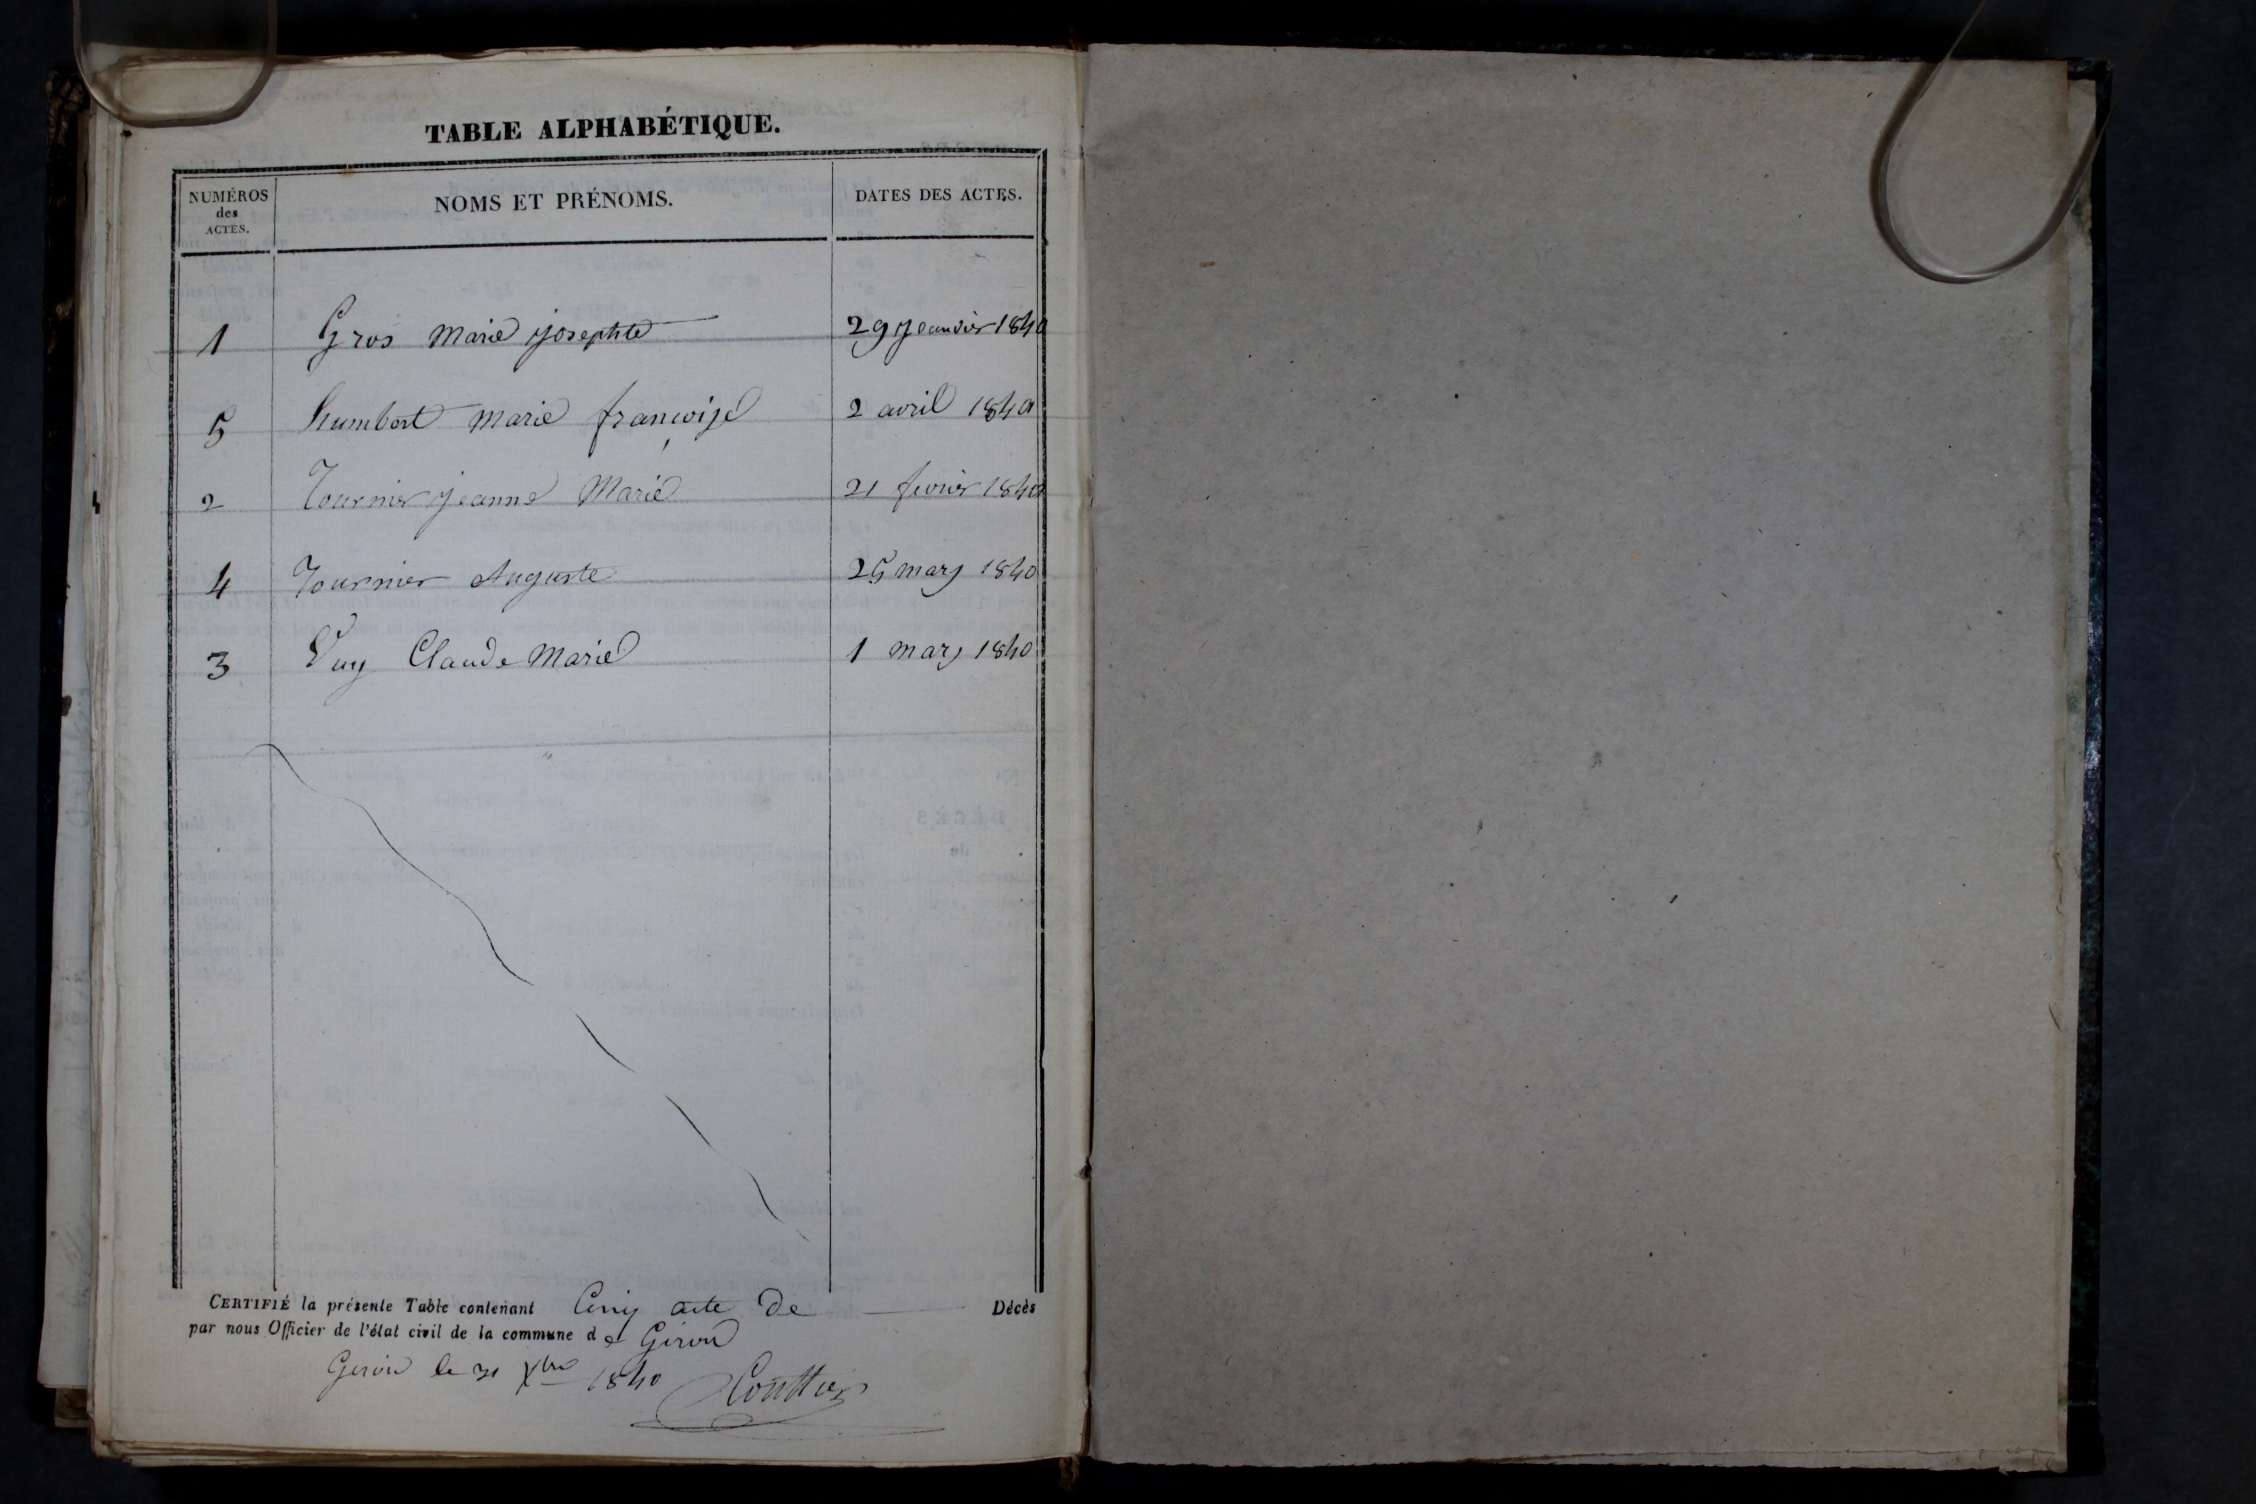 TABLE ALPHABÉTIQUE.
NUMÉROS
des
ACTES.
NOMS ET PRÉNOMS.
DATES DES ACTES.
1 Gros Marie josephte 29 jeanvier 1840
5 humbert marie françoise 2 avril 1840
2 Tournier jeanne Marie 21 fevrier 1840
4 Tournier Auguste 25 mars 1840
3 Vuy Claude Marie 1 mars 1840
CERTIFIÉ la présente Table contenant Cinq acte De Décès
par nous Officier de l'état civil de la commune d e Giron
Giron le 31 Xbre 1840